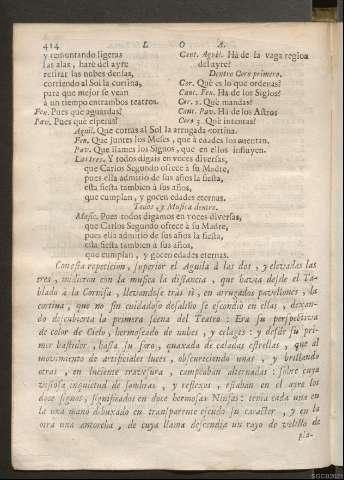 414 L O A.
y remontando ligeras
las alas, harè del ayre
retirar las nubes densas,
corriendo al Sol la cortina,
para que mejor se vean
à un tiempo entrambos teatros.
Fen. Pues que aguardas?
Pav. Pues què esperas?
Cant. Aguil. Hà de la vaga region
del ayre?
Dentro Coro primero.
Cor. Què es lo que ordenas?
Cant. Fen. Hà de los Siglos?
Cor. 2. Què mandas?
Cant. Pav. Hà de los Astros
Coro 3. Què intentas?
Aguil. Que corras al Sol la arrugada cortina.
Fen. Que juntes los Meses, que à edades los cuentan.
Pav. Que llames los Signos, que en ellos influyen.
Las tres. Y todos digais en voces diversas,
que Carlos Segundo ofrece à su Madre,
pues ella admitiò de sus años la fiesta,
esta fiesta tambien à sus años,
que cumplan, y gocen edades eternas.
Todos, y Musica dentro.
Music. Pues todos digamos en voces diversas,
que Carlos Segundo ofrece à su Madre,
pues ella admitiò de sus años la fiesta,
esta fiesta tambien à sus años,
que cumplan, y gocen edades eternas.
Con esta repeticion, superior el Aguila à las dos, y elevadas las
tres, midieron con la musica la distancia, que havia desde el Ta-
blado à la Cornisa, llevandose tras sì, en arrugados pavellones, la
cortina, que no sin cuidadoso desaliño se escondiò en ellas, dexan-
do descubierta la primera scena del Teatro: Era su perspectiva
de color de Cielo, hermoseado de nubes, y celages: y desde su pri-
mer bastidor, hasta su foro, quaxada de caladas estrellas, que al
movimiento de artificiales luces, obscureciendo unas, y brillando
otras, en luciente travesura, campeaban alternadas: sobre cuya
vistosa inquietud de sombras, y reflexos, estaban en el ayre los
doce signos, significados en doce hermosas Ninfas: tenia cada una en
la una mano dibuxado en transparente escudo su caracter, y en la
otra una antorcha, de cuya llama descendia un rayo de velillo de
pla-